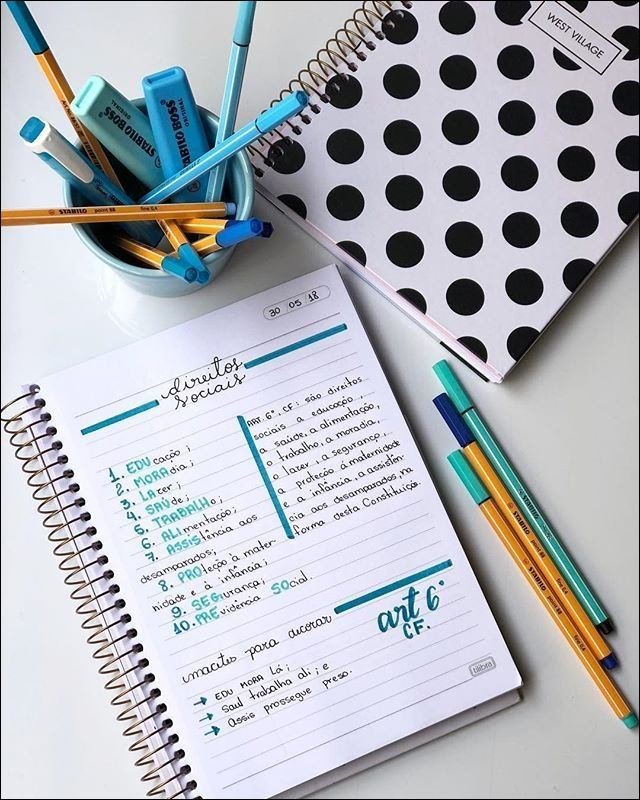 WEST VILLAGE
STABILO BOSS
ORIGINAL
STABILO BOSS
ORIGINAL
STABILO point 88 fine 0,4
30 05 18
direitos
sociais
1. EDUcação;
2. MORAdia;
3. LAzer;
4. SAÚde;
5. TRABALHo;
6. ALImentação;
7. ASSIStência aos
desamparados;
8. PROteção à mater-
nidade e à infância;
9. SEGurança;
10. PREvidência SOcial.
ART. 6°, CF: são direitos
sociais a educação,
a saúde, a alimentação,
o trabalho, a moradia,
o lazer, a segurança,
a proteção à maternidade
e à infância, a assistên-
cia aos desamparados, na
forma desta Constituição.
art 6°
CF.
macetes para decorar
→ EDU MORA LÁ;
→ Saul trabalha ali; e
→ Assis prossegue preso.
tilibra
STABILO
STABILO